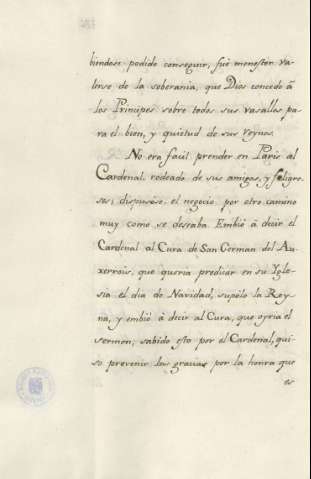 biendose podido conseguir, fué menester va-
lerse de la soberania, que Dios concede â
los Principes sobre todos sus vasallos pa-
ra el bien, y quietud de sus reynos.
No era facil prender en Paris al
Cardenal rodeado de sus amigos, y feligre-
ses; dispusose, el negocio por otro camino
muy como se deseaba Embió â decir el
Cardenal al Cura de San German del Au-
xerrois, que queria predicar en su Ygle-
sia el dia de Navidad, supólo la Rey-
na, y embió â decir al Cura, que oyria el
sermon; sabido esto por el Cardenal, qui-
so prevenir las gracias por la honra que
es